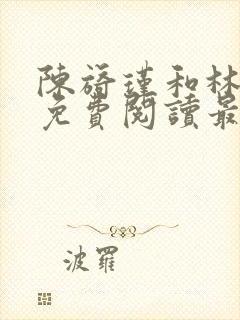 陳旖瑾和林
免費閱讀最
波羅